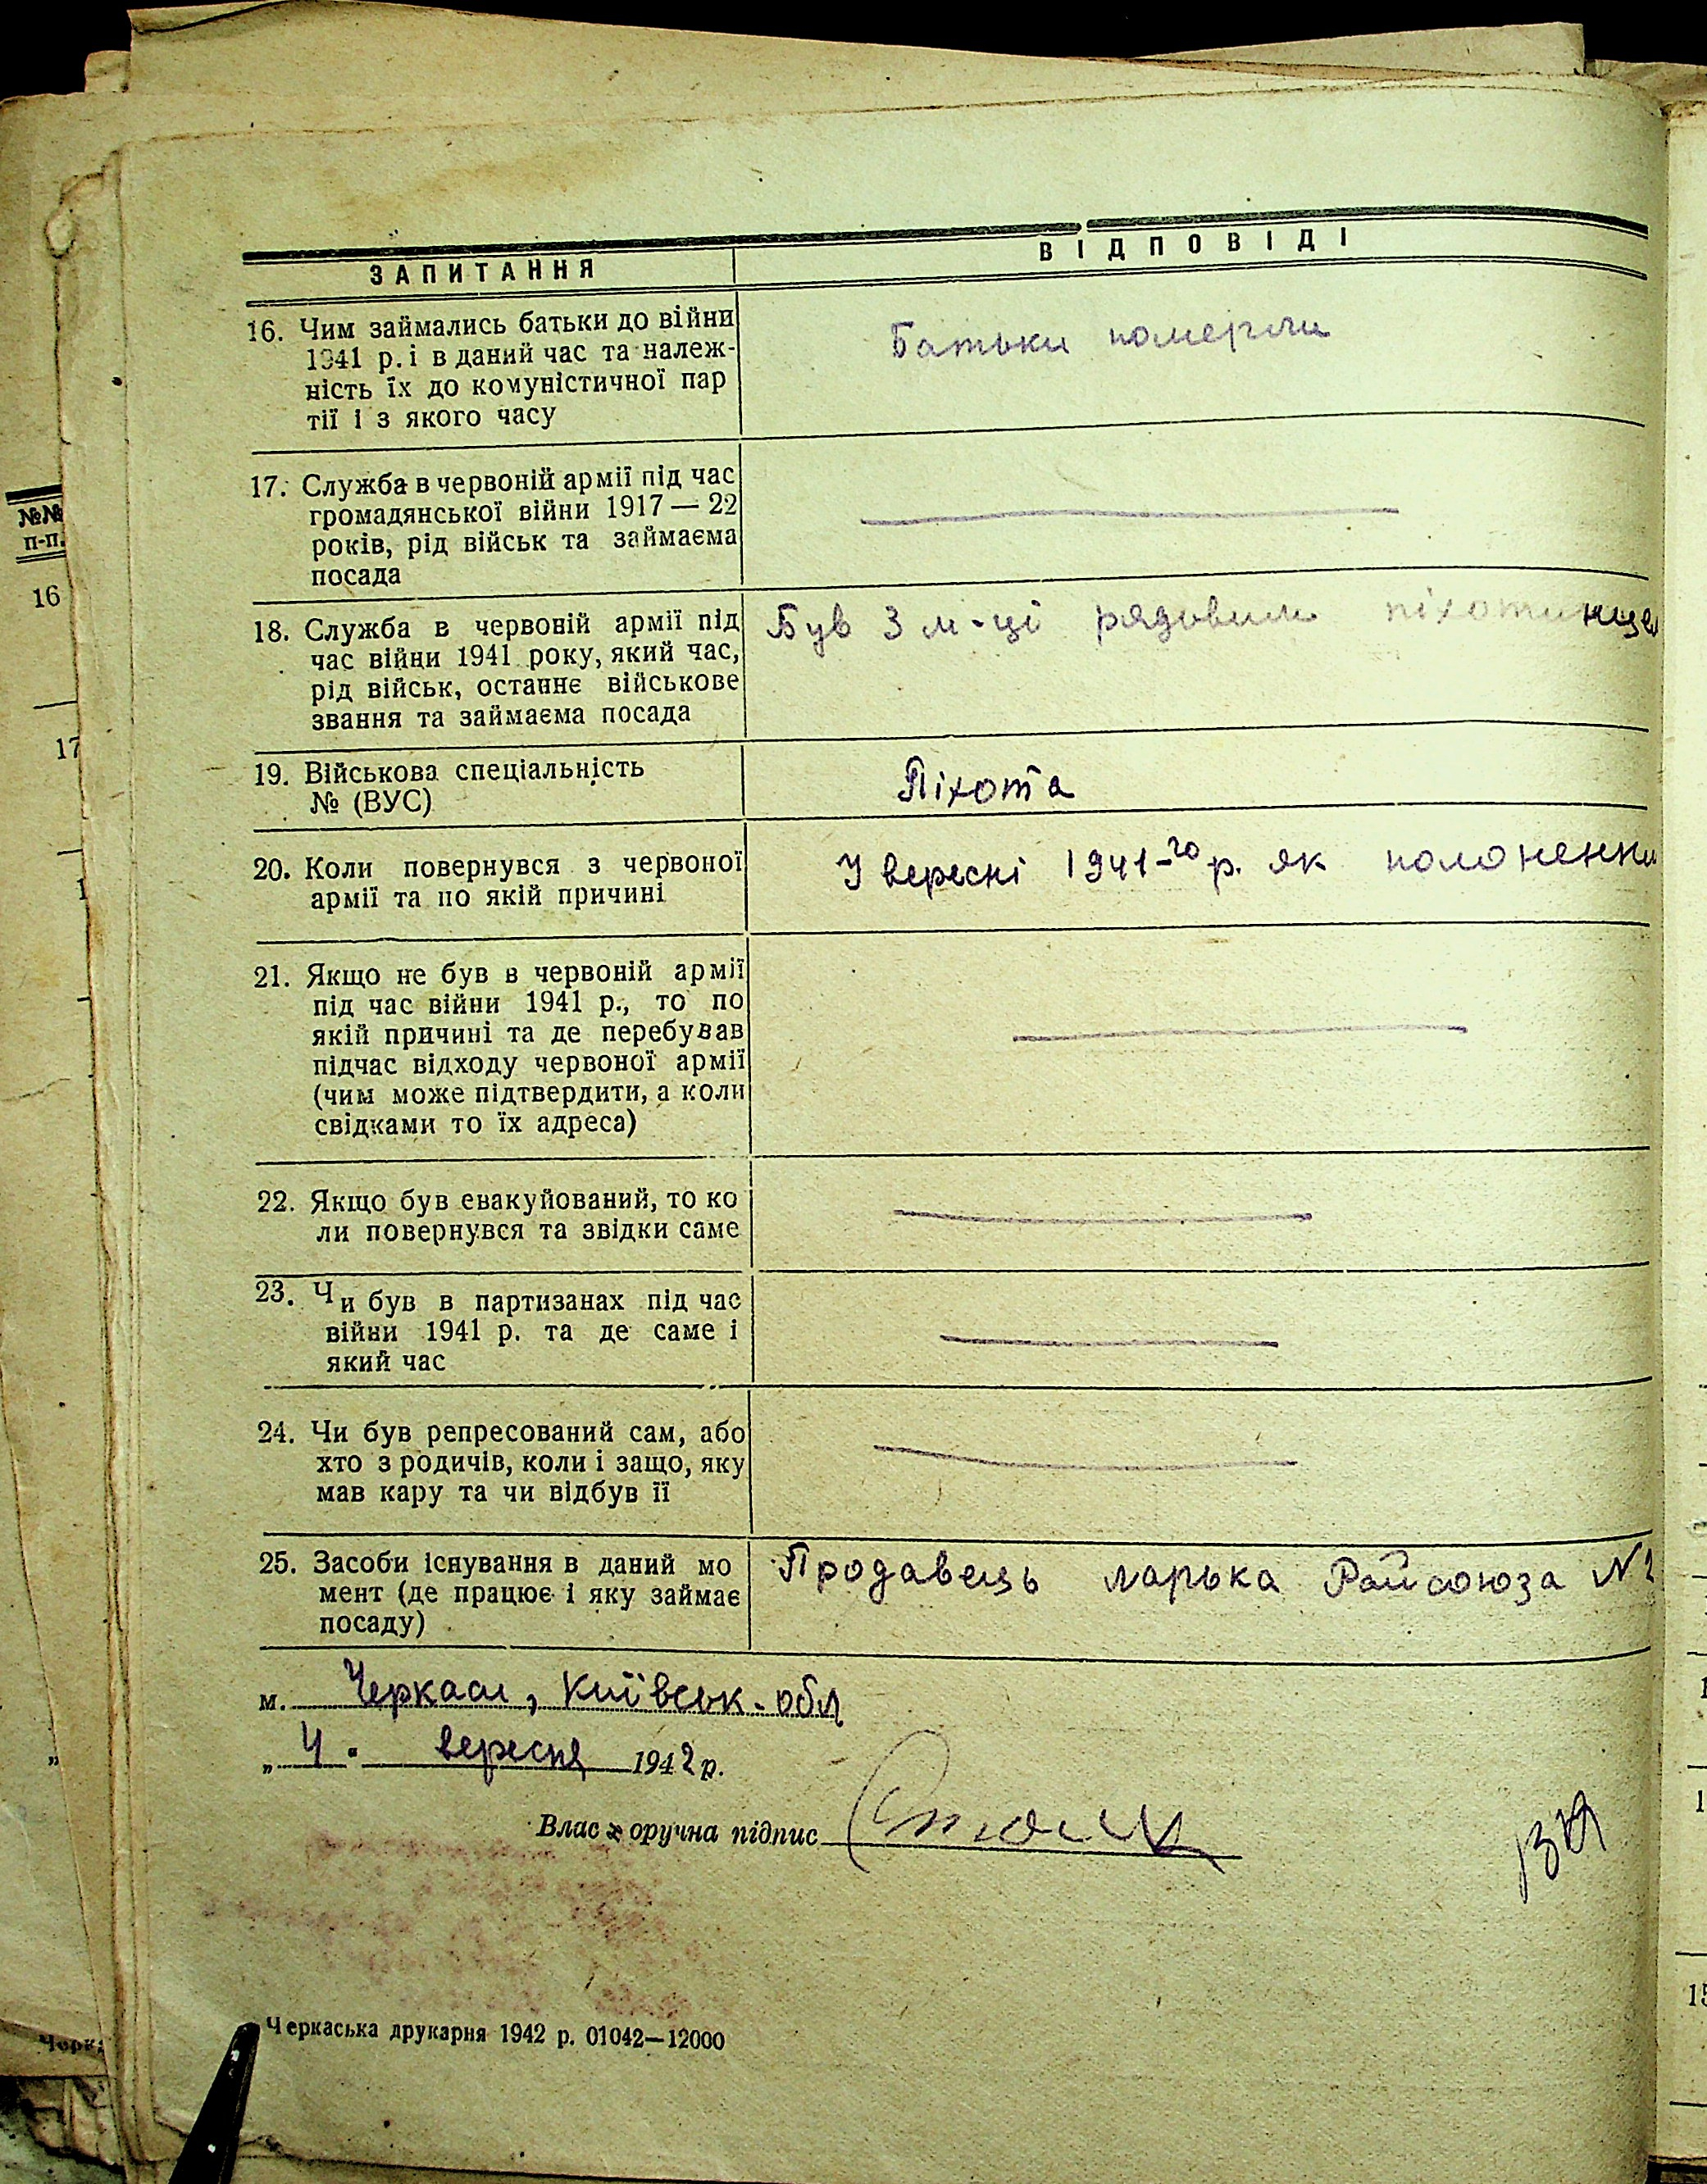 ЗАПИТАННЯ
ВІДПОВІДІ
16. Чим займались батьки до війни
1941 р. і в даний час та належ-
ність їх до комуністичної пар
тії і з якого часу
Батьки померли
17. Служба в червоній армії під час
громадянської війни 1917—22
років, рід військ та займаєма
посада
18. Служба в червоній армії під
час війни 1941 року, який час,
рід військ, останнє військове
звання та займаєма посада
Був 3 м-ці рядовим піхотинцем
19. Військова спеціальність
№ (ВУС)
Піхота
20. Коли повернувся з червоної
армії та по якій причині
У вересні 1941-го р. як полонений
21. Якщо не був в червоній армії
під час війни 1941 р., то по
якій причині та де перебував
підчас відходу червоної армії
(чим може підтвердити, а коли
свідками то їх адреса)
22. Якщо був евакуйований, то ко
ли повернувся та звідки саме
23. Чи був в партизанах під час
війни 1941 р. та де саме і
який час
24. Чи був репресований сам, або
хто з родичів, коли і защо, яку
мав кару та чи відбув її
25. Засоби існування в даний мо
мент (де працює і яку займає
посаду)
Продавець ларька Райсоюза №2
м. Черкаси, Київськ. обл
„ 4. вересня 1942 р.
Власноручна підпис
Черкаська друкарня 1942 р. 01042—12000
№№
п-п.
16
17